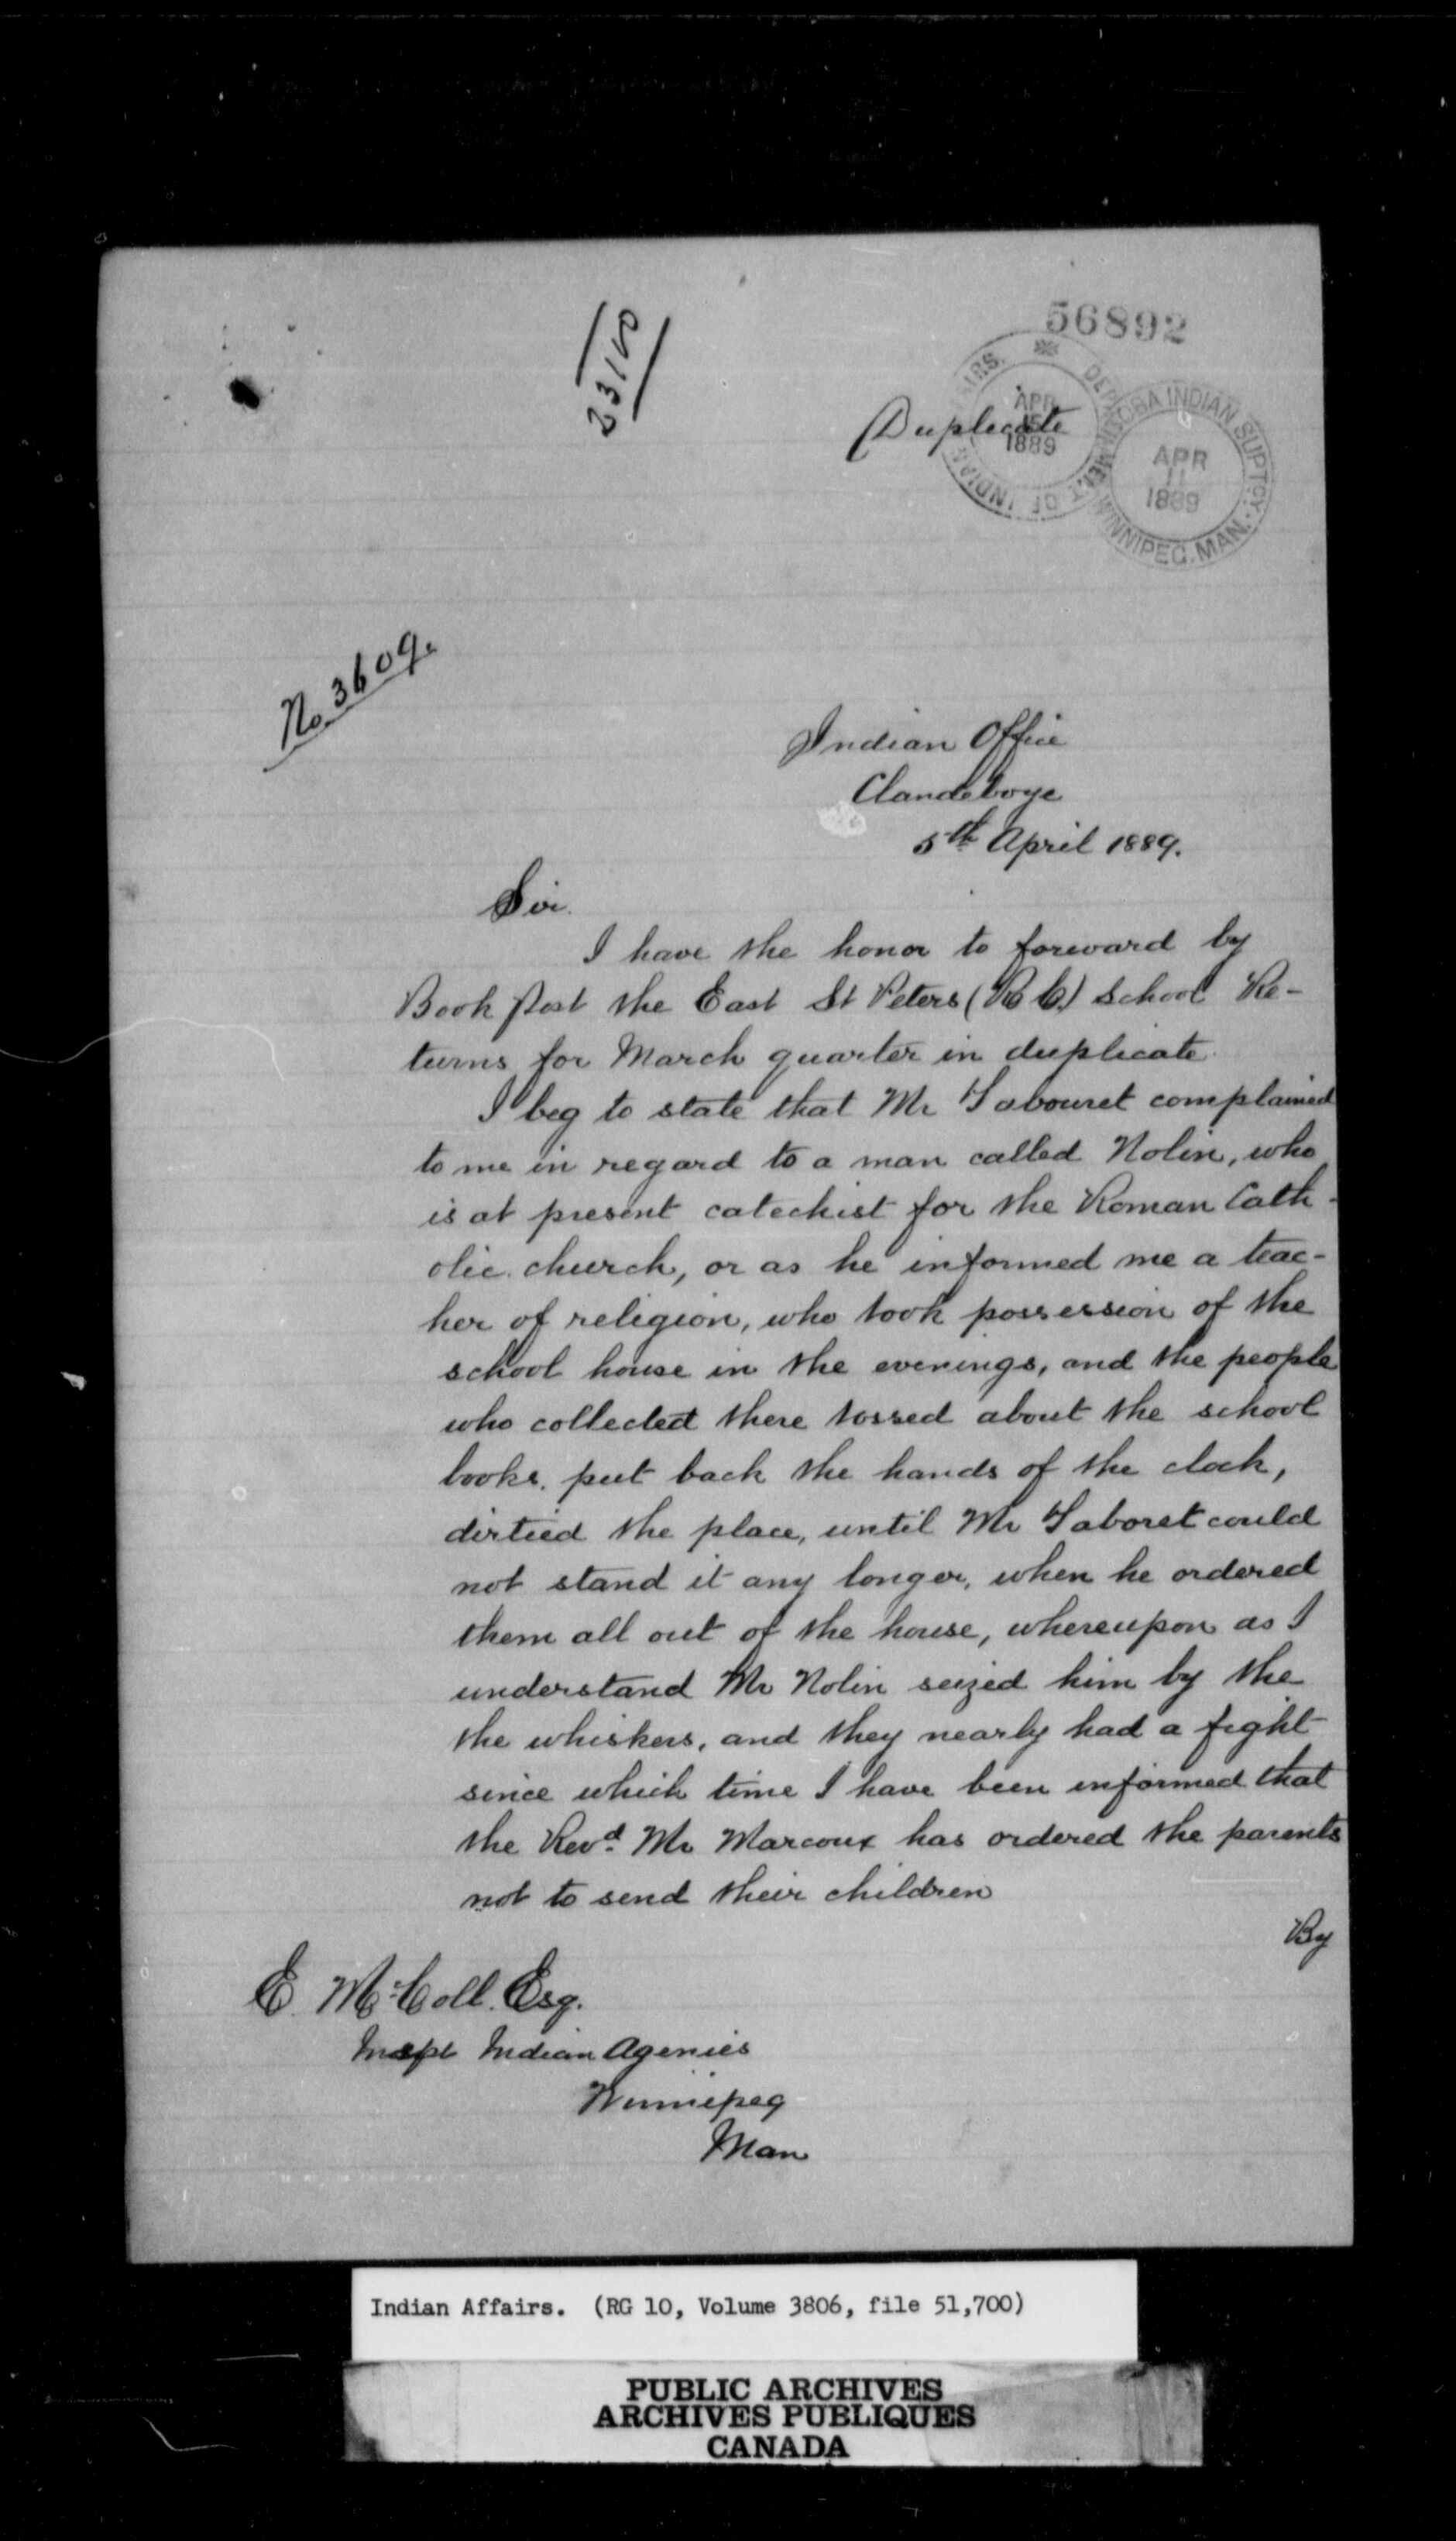 56892
23/10
Duplicate
DEPARTMENT OF INDIAN AFFAIRS.
APR
15
1889
MANITOBA INDIAN SUPTCY.
APR
11
1889
WINNIPEG. MAN.
No 3609.
Indian Office
Clandeboye
5th April 1889.
Sir.
I have the honor to forward by
Book Post the East St Peters (R C.) School Re-
turns for March quarter in duplicate.
I beg to state that Mr Tabouret complained
to me in regard to a man called Nolin, who
is at present catechist for the Roman Cath-
olic church, or as he informed me a teac-
her of religion, who took possession of the
school house in the evenings, and the people
who collected there tossed about the school
books, put back the hands of the clock,
dirtied the place, until Mr Taboret could
not stand it any longer, when he ordered
them all out of the house, whereupon as I
understand Mr Nolin seized him by the
the whiskers, and they nearly had a fight
since which time I have been informed that
the Revd. Mr Marcoux has ordered the parents
not to send their children
By
E. McColl. Esq.
Inspt Indian Agencies
Winnipeg
Man
Indian Affairs. (RG 10, Volume 3806, file 51,700)
PUBLIC ARCHIVES
ARCHIVES PUBLIQUES
CANADA